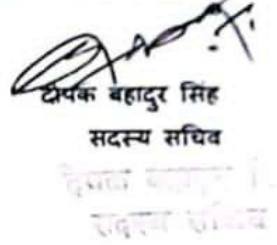 दीपक बहादुर सिंह
सदस्य सचिव